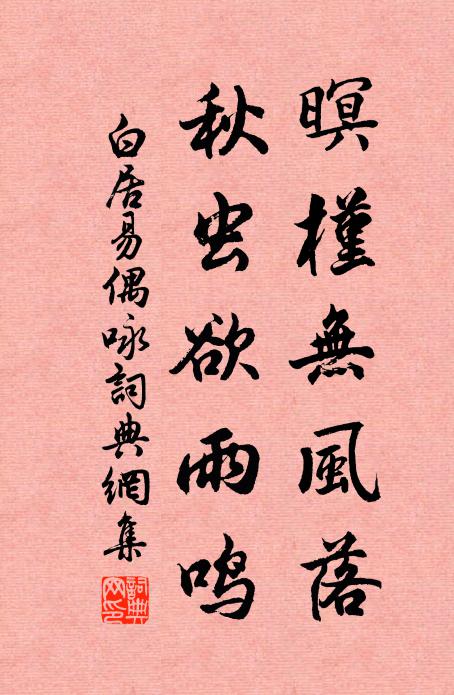 暝槿無風落
秋虫欲雨鸣
白居易偶咏詞典網集
詞典網印